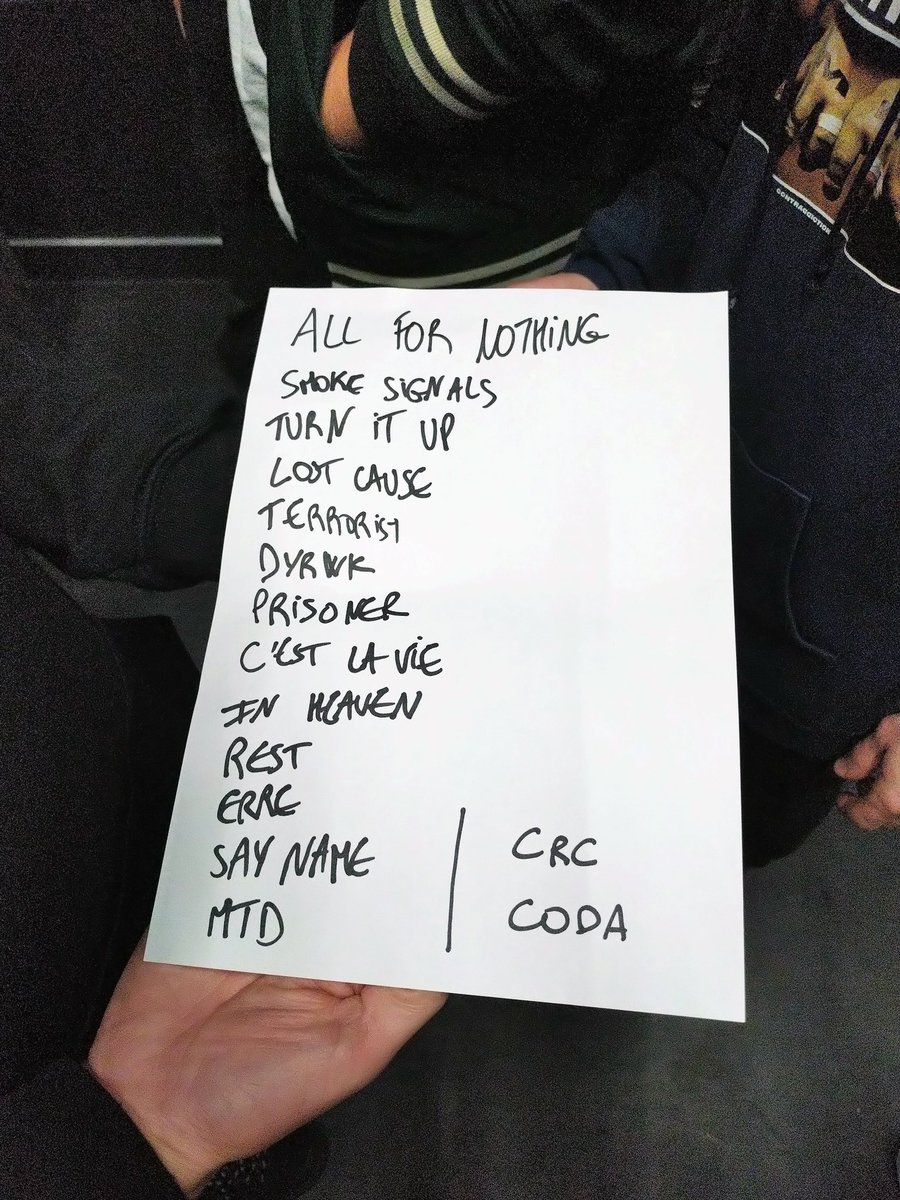 CONTRADICTION
ALL FOR NOTHING
SMOKE SIGNALS
TURN IT UP
LOST CAUSE
TERRORIST
DYRWK
PRISONER
C'EST LA VIE
IN HEAVEN
REST
ERRE
SAY NAME | CRC
MTD | CODA